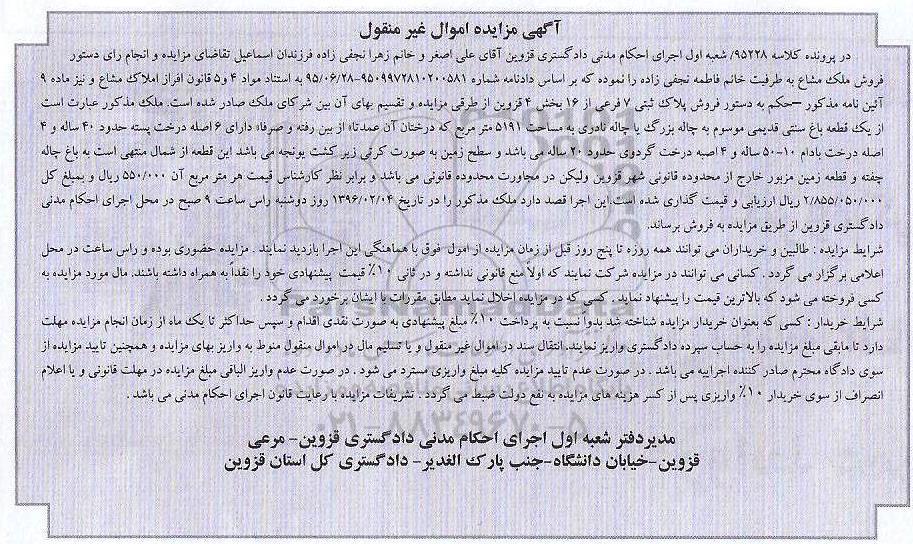 آگهی مزایده اموال غیر منقول
در پرونده کلاسه ۹۵۲۲۸/ شعبه اول اجرای احکام مدنی دادگستری قزوین آقای علی اصغر و خانم زهرا نجفی زاده فرزندان اسماعیل تقاضای مزایده و انجام رای دستور
فروش ملک مشاع به طرفیت خانم فاطمه نجفی زاده را نموده که بر اساس دادنامه شماره ۹۵۰۹۹۷۲۸۱۰۲۰۰۵۸۱-۹۵/۰۶/۲۸ به استناد مواد ۴ و۵ قانون افراز املاک مشاع و نیز ماده ۹
آئین نامه مذکور –حکم به دستور فروش پلاک ثبتی ۷ فرعی از ۱۶ بخش ۴ قزوین از طرقی مزایده و تقسیم بهای آن بین شرکای ملک صادر شده است. ملک مذکور عبارت است
از یک قطعه باغ سنتی قدیمی موسوم به چاله بزرگ یا چاله نادری به مساحت ۵۱۹۱ متر مربع که درختان آن عمدتاء از بین رفته و صرفاء دارای ۶ اصله درخت پسته حدود ۴۰ ساله و ۴
اصله درخت بادام ۱۰-۵۰ ساله و ۴ اصبه درخت گردوی حدود ۲۰ ساله می باشد و سطح زمین به صورت کرتی زیر کشت یونجه می باشد این قطعه از شمال منتهی است به باغ چاله
چفته و قطعه زمین مزبور خارج از محدوده قانونی شهر قزوین ولیکن در مجاورت محدوده قانونی می باشد و برابر نظر کارشناس قیمت هر متر مربع آن ۵۵۰/۰۰۰ ریال و بمبلغ کل
۲/۸۵۵/۰۵۰/۰۰۰ ریال ارزیابی و قیمت گذاری شده است.این اجرا قصد دارد ملک مذکور را در تاریخ ۱۳۹۶/۰۲/۰۴ روز دوشنبه راس ساعت ۹ صبح در محل اجرای احکام مدنی
دادگستری قزوین از طریق مزایده به فروش برساند.
شرایط مزایده : طالبین و خریداران می توانند همه روزه تا پنج روز قبل از زمان مزایده از اموال فوق با هماهنگی این اجرا بازدید نمایند . مزایده حضوری بوده و راس ساعت در محل
اعلامی برگزار می گردد . کسانی می توانند در مزایده شرکت نمایند که اولاً منع قانونی نداشته و در ثانی ۱۰٪ قیمت پیشنهادی خود را نقداً به همراه داشته باشند. مال مورد مزایده به
کسی فروخته می شود که بالاترین قیمت را پیشنهاد نماید . کسی که در مزایده اخلال نماید مطابق مقررات با ایشان برخورد می گردد .
شرایط خریدار : کسی که بعنوان خریدار مزایده شناخته شد بدواً نسبت به پرداخت ۱۰٪ مبلغ پیشنهادی به صورت نقدی اقدام و سپس حداکثر تا یک ماه از زمان انجام مزایده مهلت
دارد تا مابقی مبلغ مزایده را به حساب سپرده دادگستری واریز نمایند.انتقال سند در اموال غیر منقول و یا تسلیم مال در اموال منقول منوط به واریز بهای مزایده و همچنین تایید مزایده از
سوی دادگاه محترم صادر کننده اجراییه می باشد . در صورت عدم تایید مزایده کلیه مبلغ واریزی مسترد می شود . در صورت عدم واریز الباقی مبلغ مزایده در مهلت قانونی و یا اعلام
انصراف از سوی خریدار ۱۰٪ واریزی پس از کسر هزینه های مزایده به نفع دولت ضبط می گردد . تشریفات مزایده با رعایت قانون اجرای احکام مدنی می باشد .
مدیردفتر شعبه اول اجرای احکام مدنی دادگستری قزوین- مرعی
قزوین-خیابان دانشگاه-جنب پارک الغدیر- دادگستری کل استان قزوین
ParsNamadData
۰۲۱-۸۸۳۴۹۶۷۰-۵